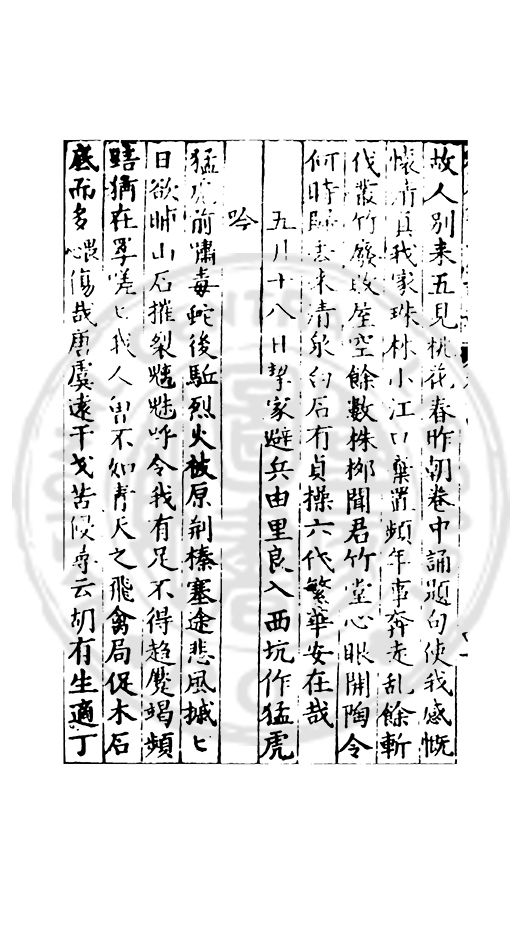 故人別来五見桃花春昨朝卷中誦題句使我感慨
懷清真我家珠林小江口棄置頻年事奔走乱餘斬
伐叢竹廢故屋空餘數株栁聞君竹堂心眼開陶令
何時歸去来清泉白石有貞操六代繁華安在哉
五月十八日挈家避兵由里良入西坑作猛虎
吟
猛虎前嘯毒蛇後馳烈火被原荆榛塞途悲風撼匕
日欲晡山石摧裂魑魅呼令我有足不得趋蹷竭頻
躋猶在罦嗟匕我人曽不如青天之飛禽局促木石
底而多 傷哉唐虞遠干戈苦侵尋云胡有生適丁